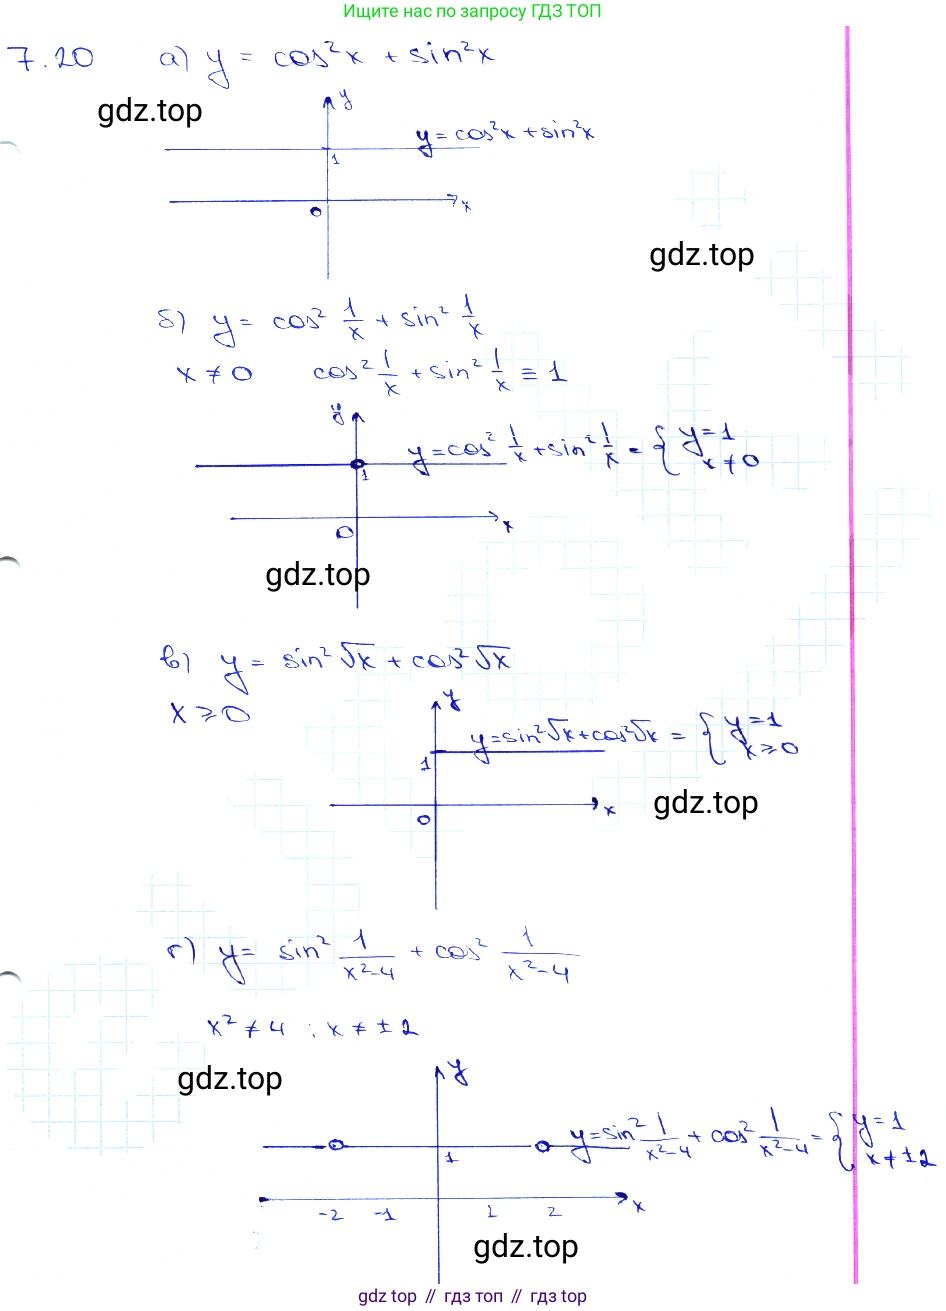 Ищите нас по запросу ГДЗ ТОП
7.20 а) y = cos²x + sin²x
gdz.top
y
y = cos²x + sin²x
1
x
0
gdz.top
б) y = cos² 1/x + sin² 1/x
x ≠ 0 cos² 1/x + sin² 1/x ≡ 1
y
y = cos² 1/x + sin² 1/x = { y = 1
x ≠ 0
1
x
0
gdz.top
в) y = sin² √x + cos² √x
x ⩾ 0
y
y = sin²√x + cos²√x = { y = 1
x ⩾ 0
1
x
0
gdz.top
г) y = sin² 1/(x²-4) + cos² 1/(x²-4)
x² ≠ 4 ; x ≠ ± 2
y
gdz.top
y = sin² 1/(x²-4) + cos² 1/(x²-4) = { y = 1
x ≠ ± 2
1
-2 -1 1 2 x
gdz.top
gdz top // гдз топ // гдз top